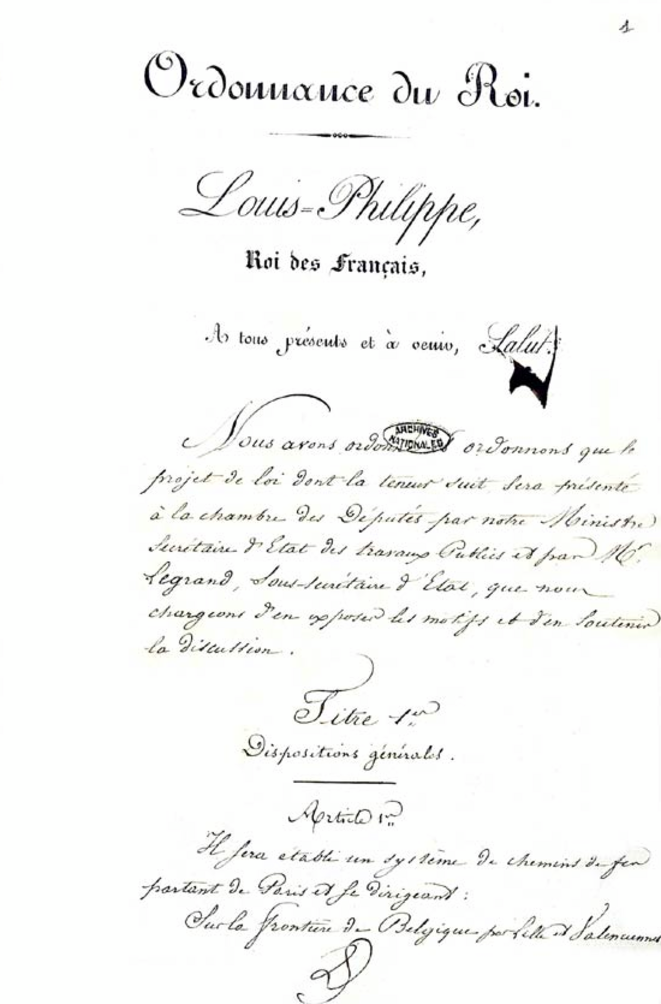 1
Ordonnance du Roi.
Louis=Philippe,
Roi des Français,
A tous présents et à venir, Salut.
Nous avons ordonné ordonnons que le
ARCHIVES
NATIONALES
projet de loi dont la teneur suit sera présenté
à la chambre des Députés par notre Ministre
Secrétaire d'Etat des travaux Publics et par Mr.
Legrand, Sous-secrétaire d'Etat, que nous
chargeons d'en exposer les motifs et d'en soutenir
la discussion.
Titre 1er
Dispositions générales.
Article 1er
Il sera établi un système de chemins de fer
partant de Paris et se dirigeant :
Sur la frontière de Belgique par Lille et Valenciennes